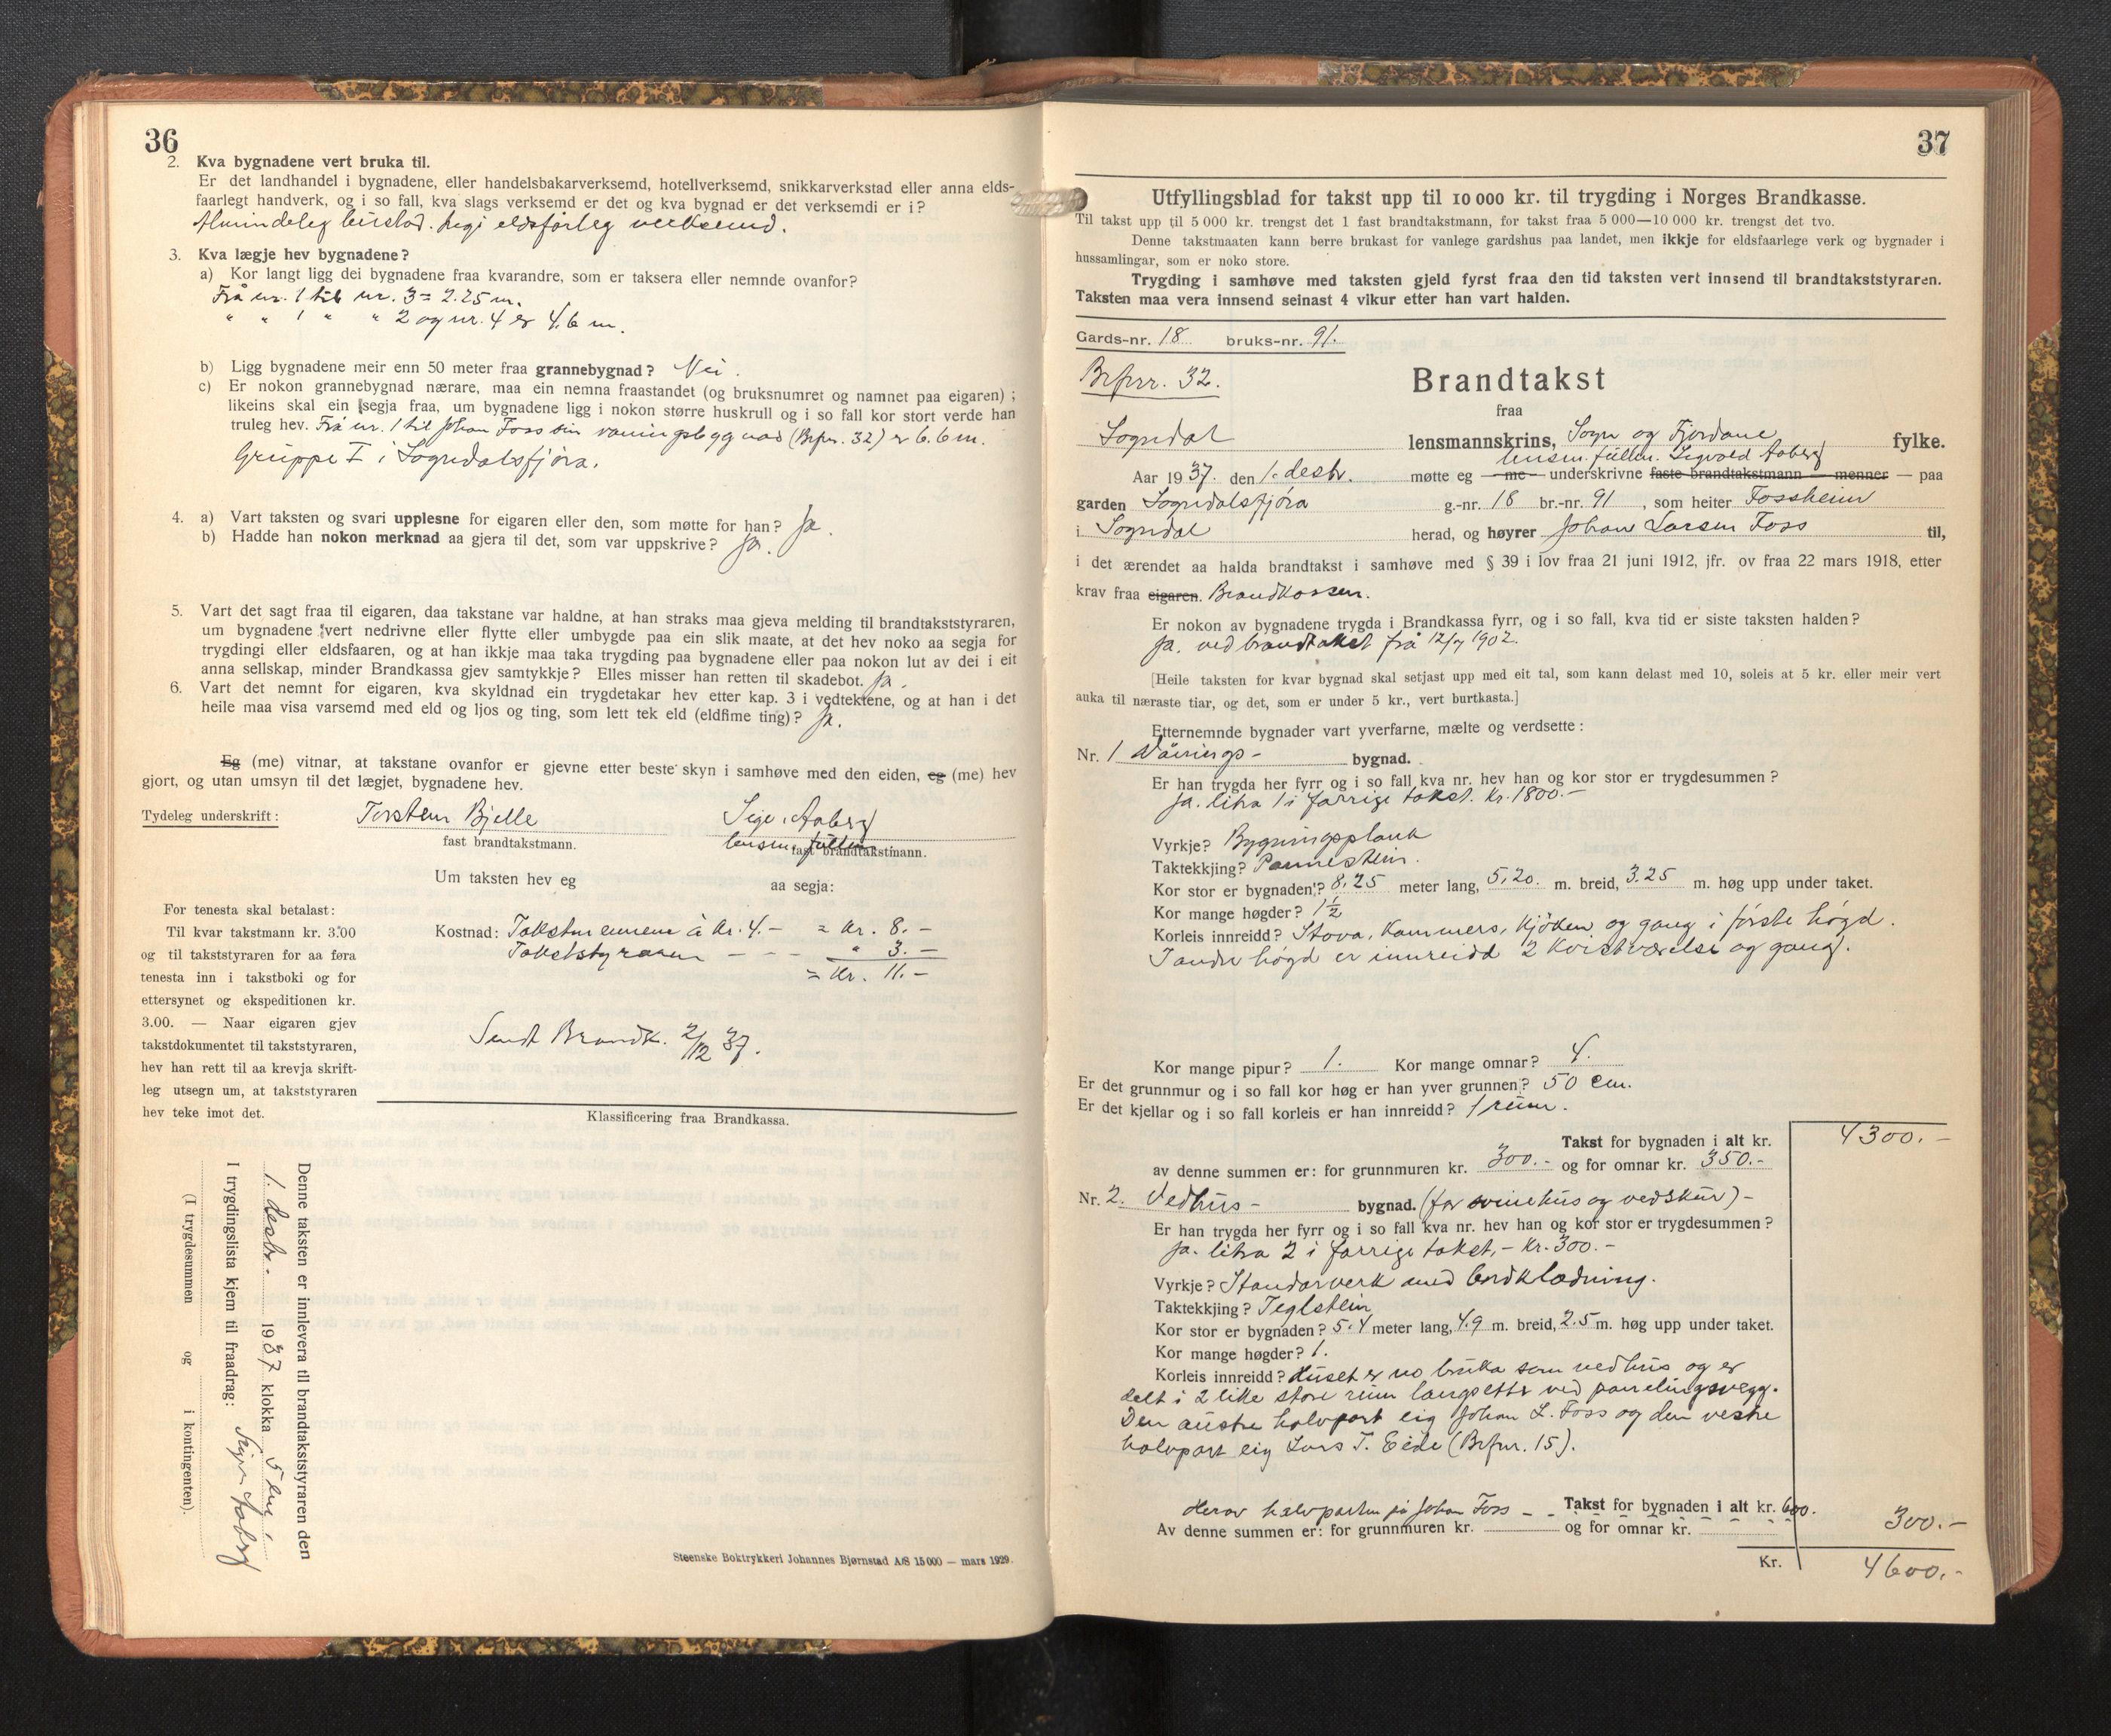 36
2. Kva bygnadene vert bruka til.
Er det landhandel i bygnadene, eller handelsbakarverksemd, hotellverksemd, snikkarverkstad eller anna elds-
faarlegt handverk, og i so fall, kva slags verksemd er det og kva bygnad er det verksemdi er i?
Almindeleg bustad. Ingi eldsfårleg verksemd.
3. Kva lægje hev bygnadene?
a) Kor langt ligg dei bygnadene fraa kvarandre, som er taksera eller nemnde ovanfor?
Frå nr. 1 til nr. 3 = 2.25 m.
" " 1 " " 2 og nr. 4 er 4,6 m.
b) Ligg bygnadene meir enn 50 meter fraa grannebygnad? Nei.
c) Er nokon grannebygnad nærare, maa ein nemna fraastandet (og bruksnumret og namnet paa eigaren);
likeins skal ein segja fraa, um bygnadene ligg i nokon større huskrull og i so fall kor stort verde han
truleg hev. Frå nr. 1 til Johan Foss sin våningsbygnad (Brfnr. 32) er 6.6 m.
Gruppe I i Sogndalsfjøra.
4. a) Vart taksten og svari upplesne for eigaren eller den, som møtte for han? Ja.
b) Hadde han nokon merknad aa gjera til det, som var uppskrive? Ja.
5. Vart det sagt fraa til eigaren, daa takstane var haldne, at han straks maa gjeva melding til brandtakststyraren,
um bygnadene vert nedrivne eller flytte eller umbygde paa ein slik maate, at det hev noko aa segja for
trygdingi eller eldsfaaren, og at han ikkje maa taka trygding paa bygnadene eller paa nokon lut av dei i eit
anna sellskap, minder Brandkassa gjev samtykkje? Elles misser han retten til skadebot. Ja.
6. Vart det nemnt for eigaren, kva skyldnad ein trygdetakar hev etter kap. 3 i vedtektene, og at han i det
heile maa visa varsemd med eld og ljos og ting, som lett tek eld (eldfime ting)? Ja.
Eg (me) vitnar, at takstane ovanfor er gjevne etter beste skyn i samhøve med den eiden, eg (me) hev
gjort, og utan umsyn til det lægjet, bygnadene hev.
Tydeleg underskrift: Torstein Bjelle Sigv. Aaberg
fast brandtakstmann. lensm. fullm. fast brandtakstmann.
Um taksten hev eg aa segja:
For tenesta skal betalast:
Til kvar takstmann kr. 3.00
og til takststyraren for aa føra
tenesta inn i takstboki og for
ettersynet og ekspeditionen kr.
3.00. — Naar eigaren gjev
takstdokumentet til takststyraren,
hev han rett til aa krevja skrift-
leg utsegn um, at takststyraren
hev teke imot det.
Kostnad: Takstmennene à kr. 4.- = kr. 8.-
Takststyraren - - - " 3.-
= kr. 11.-
Sendt Brandk. 2/12 37.
Klassificering fraa Brandkassa.
Denne taksten er innlevera til brandtakststyraren den
1. desbr. 1937 klokka 5 em
I trygdingslista kjem til fraadrag: Sigv. Aaberg
(I trygdesummen og i kontingenten).
Steenske Boktrykkeri Johannes Bjørnstad A/S 15000 — mars 1929.
37
Utfyllingsblad for takst upp til 10 000 kr. til trygding i Norges Brandkasse.
Til takst upp til 5 000 kr. trengst det 1 fast brandtakstmann, for takst fraa 5 000—10 000 kr. trengst det tvo.
Denne takstmaaten kann berre brukast for vanlege gardshus paa landet, men ikkje for eldsfaarlege verk og bygnader i
hussamlingar, som er noko store.
Trygding i samhøve med taksten gjeld fyrst fraa den tid taksten vert innsend til brandtakststyraren.
Taksten maa vera innsend seinast 4 vikur etter han vart halden.
Gards-nr. 18 bruks-nr. 91.
Brfnr. 32.
Brandtakst
fraa
Sogndal lensmannskrins, Sogn og Fjordane fylke.
lensm. fullm. Sigvald Aaberg
Aar 1937. den 1. desbr. møtte eg — me — underskrivne faste brandtakstmann — menner — paa
garden Sogndalsfjøra g.-nr. 18 br.-nr. 91, som heiter Fossheim
i Sogndal herad, og høyrer Johan Larsen Foss til,
i det ærendet aa halda brandtakst i samhøve med § 39 i lov fraa 21 juni 1912, jfr. ov fraa 22 mars 1918, etter
krav fraa eigaren. Brandkassen.
Er nokon av bygnadene trygda i Brandkassa fyrr, og i so fall, kva tid er siste taksten halden?
Ja. ved brandtakst frå 12/7 1902.
[Heile taksten for kvar bygnad skal setjast upp med eit tal, som kann delast med 10, soleis at 5 kr. eller meir vert
auka til næraste tiar, og det, som er under 5 kr., vert burtkasta.]
Etternemnde bygnader vart yverfarne, mælte og verdsette:
Nr. 1 Vånings- bygnad.
Er han trygda her fyrr og i so fall kva nr. hev han og kor stor er trygdesummen?
Ja. litra 1 i førrige takst. Kr. 1800.-
Vyrkje? Bygningsplank
Taktekkjing? Pannestein.
Kor stor er bygnaden? 8,25 meter lang, 5,20. m. breid, 3.25 m. høg upp under taket.
Kor mange høgder? 1 ½
Korleis innreidd? Stova, kammers, kjøken og gang i første høgd.
I andre høgd er innreidd 2 kvistværelse og gang.
Kor mange pipur? 1. Kor mange omnar? 4.
Er det grunnmur og i so fall kor høg er han yver grunnen? 50 cm.
Er det kjellar og i so fall korleis er han innreidd? 1 rum.
Takst for bygnaden i alt kr. 4300.-
av denne summen er: for grunnmuren kr. 300.- og for omnar kr. 350.-
Nr. 2. Vedhus- bygnad. (før svinehus og vedskur)-
Er han trygda her fyrr og i so fall kva nr. hev han og kor stor er trygdesummen?
Ja. litra 2 i førrige takst, - kr. 300.-
Vyrkje? Standarverk med bordklædning.
Taktekkjing? Teglstein
Kor stor er bygnaden? 5.4 meter lang, 4.9 m. breid, 2.5 m. høg upp under taket.
Kor mange høgder? 1.
Korleis innreidd? Huset er no bruka som vedhus og er
delt i 2 like store rum langsetter ved panelingsvegg.
Den austre halvpart eig Johan L. Foss og den vestre
halvpart eig Lars T. Eide (Brfnr. 15).
Herav halvparten på Johan Foss - - Takst for bygnaden i alt kr. 600.
Av denne summen er: for grunnmuren kr. og for omnar kr. 300.-
Kr. 4600.-